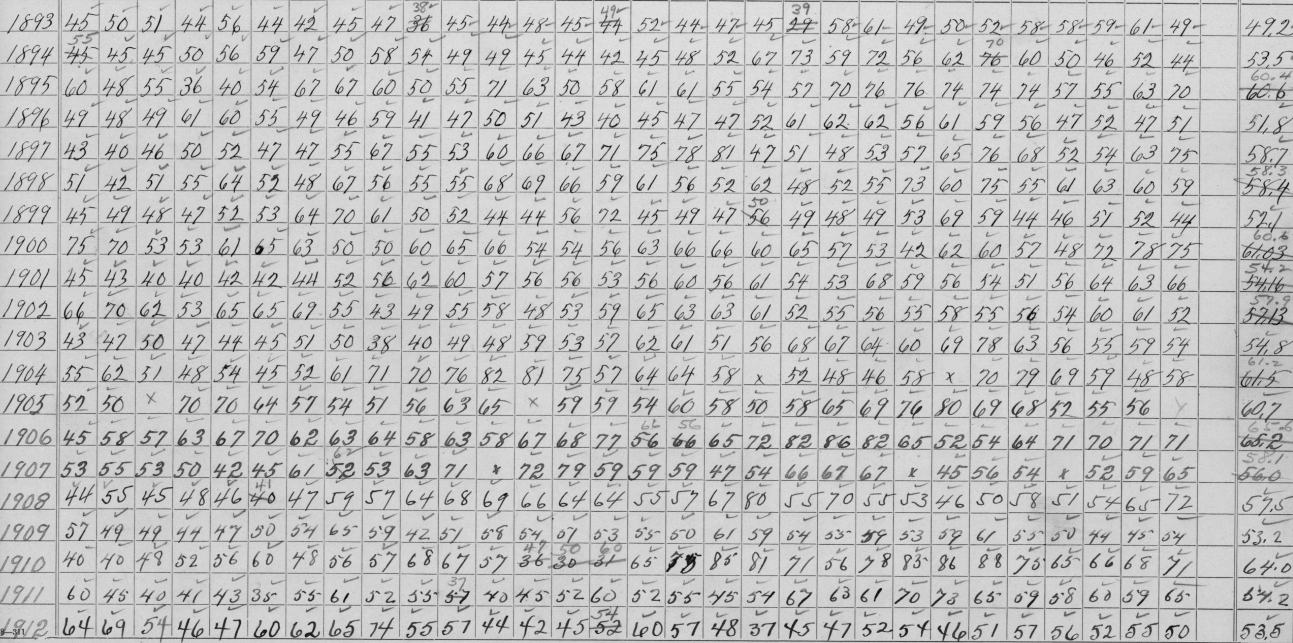 1893 45 50 51 44 56 44 42 45 47 38 36 45 44 48 45 49 44 52 44 47 45 39 29 58 61 49 50 52 58 58 59 61 49 49.2
1894 55 45 45 45 50 56 59 47 50 58 54 49 49 45 44 42 45 48 52 67 73 59 72 56 62 70 76 60 50 46 52 44 53.5
1895 60 48 55 36 40 54 67 67 60 50 55 71 63 50 58 61 61 55 54 57 70 76 76 74 74 74 57 55 63 70 60.4 60.6
1896 49 48 49 61 60 55 49 46 59 41 47 50 51 43 40 45 47 47 52 61 62 62 56 61 59 56 47 52 47 51 51.8
1897 43 40 46 50 52 47 47 55 67 55 53 60 66 61 71 75 78 81 47 51 48 53 57 65 76 68 52 54 63 75 58.7
1898 51 42 51 55 64 52 48 67 56 55 55 68 69 66 59 61 56 52 62 48 52 55 73 60 75 55 61 63 60 59 58.3 58.4
1899 45 49 48 47 52 53 64 70 61 50 52 44 44 56 72 45 49 47 50 56 49 48 49 53 69 59 44 46 51 52 44 52.1
1900 75 70 53 53 61 65 63 50 50 60 65 66 54 54 56 63 66 66 60 65 57 53 42 62 60 57 48 72 78 75 60.6 61.03
1901 45 43 40 40 42 42 44 52 56 62 60 57 56 56 53 56 60 56 61 54 53 68 59 56 54 51 56 64 63 66 54.2 54.16
1902 66 70 62 53 65 65 69 55 43 49 55 58 48 53 59 65 63 63 61 52 55 56 55 58 55 56 54 60 61 52 57.9 57.13
1903 43 47 50 47 44 45 51 50 38 40 49 48 59 53 57 62 61 51 56 68 67 64 60 69 78 63 56 55 59 54 54.8
1904 55 62 51 48 54 45 52 61 71 70 76 82 81 75 57 64 64 58 x 52 48 46 58 x 70 79 69 59 48 58 61.2 61.5
1905 52 50 x 70 70 64 57 54 51 56 63 65 x 59 59 54 60 58 50 58 65 69 76 80 69 68 52 55 56 x 60.7
1906 45 58 57 63 67 70 62 63 64 58 63 58 67 68 77 66 56 56 66 65 72 82 86 82 65 52 54 64 71 70 71 71 65.2
1907 53 55 53 50 42 45 61 62 52 53 63 71 x 72 79 59 59 59 47 54 66 67 67 x 45 56 54 x 52 59 65 58.1 56.0
1908 44 55 45 48 46 41 40 47 59 57 64 68 69 66 64 64 55 57 67 80 55 70 55 53 46 50 58 51 54 65 72 57.5
1909 57 49 49 44 47 50 54 65 59 42 51 58 54 57 53 55 50 61 59 54 55 59 53 59 61 55 50 44 45 54 53.2
1910 40 40 48 52 56 60 48 56 57 68 67 57 47 36 50 30 60 31 65 75 85 81 71 56 78 83 86 88 75 65 66 68 71 64.0
1911 60 45 40 41 43 35 55 61 52 55 37 57 40 45 52 60 52 55 45 54 67 63 61 70 73 65 59 58 60 59 65 54.2
1912 64 69 54 46 47 60 62 65 74 55 57 44 42 45 54 52 60 57 48 37 45 47 52 54 46 51 57 56 52 55 50 53.5